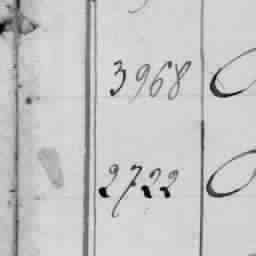 3968
2722